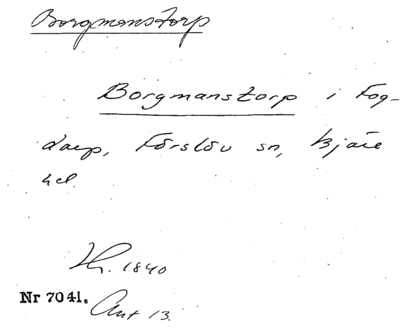 Borgmanstorp
Borgmanstorp i Fog-
darp, Förslöv sn, Bjäre
hd.
Hr. 1840
Nr 7041. Ant 13.